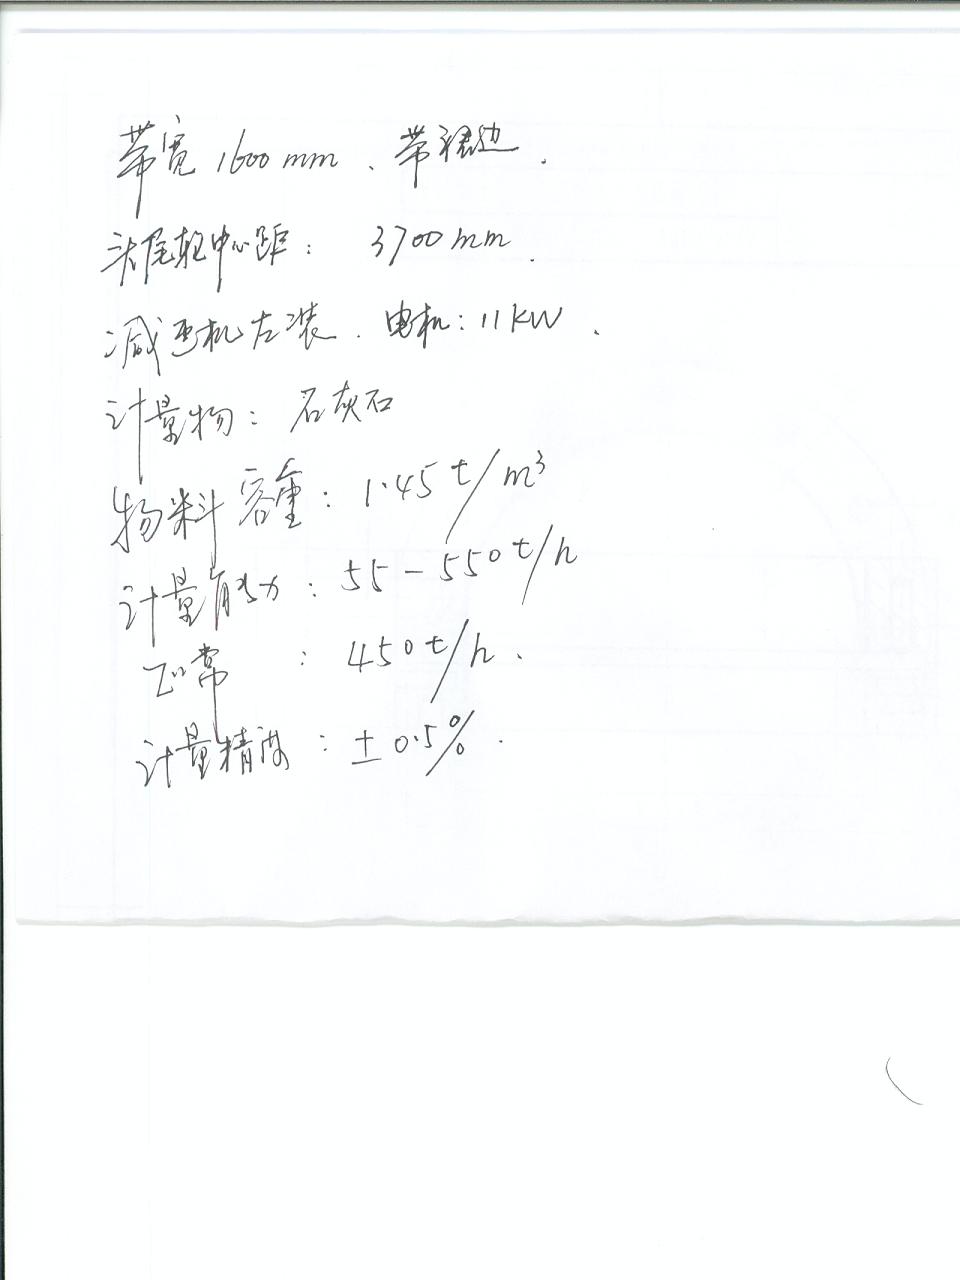 带宽1600mm、带裙边.
头尾轮中心距: 3700mm.
减速机左装. 电机:11KW.
计量物: 石灰石
物料容重: 1.45t/m³
计量能力: 55-550t/h
正常 : 450t/h.
计量精度: ±0.5%.